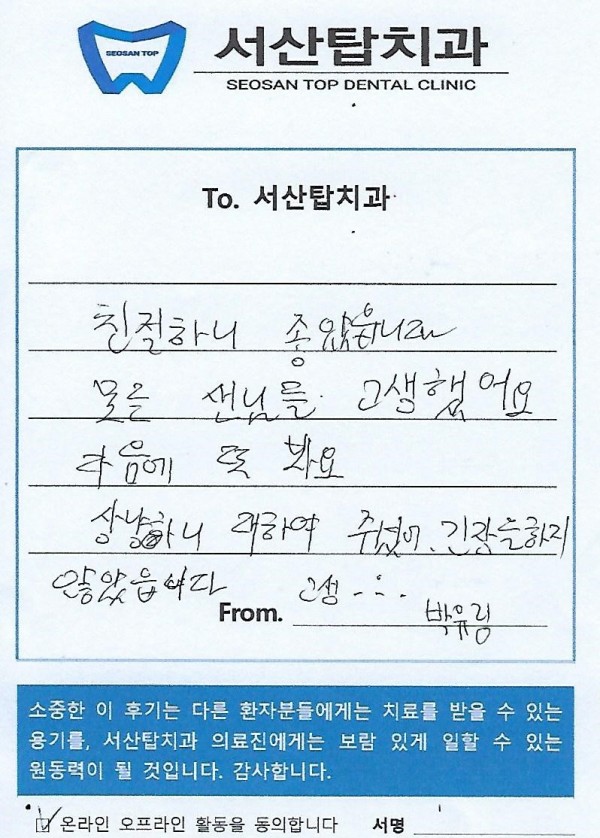 SEOSAN TOP
서산탑치과
SEOSAN TOP DENTAL CLINIC
To. 서산탑치과
친절하니 좋았읍니다
모든 샌님들 고생했어요
다음에 또 봐요
상냥하니 대하여 주셨어. 긴장들하지
않았읍니다 고생 - . . .
From. 박유림
소중한 이 후기는 다른 환자분들에게는 치료를 받을 수 있는
용기를, 서산탑치과 의료진에게는 보람 있게 일할 수 있는
원동력이 될 것입니다. 감사합니다.
온라인 오프라인 활동을 동의합니다 서명